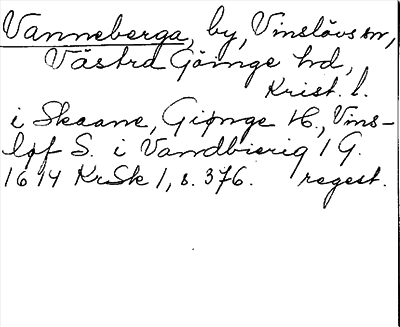 Vanneberga, by, Vinslövs sn,
Västra Göinge hd,
Krist. l.
i Skaane, Giønge H., Vins-
løf S. i Vandbierig 1 G.
1614 KrSk 1, s. 376. regest.